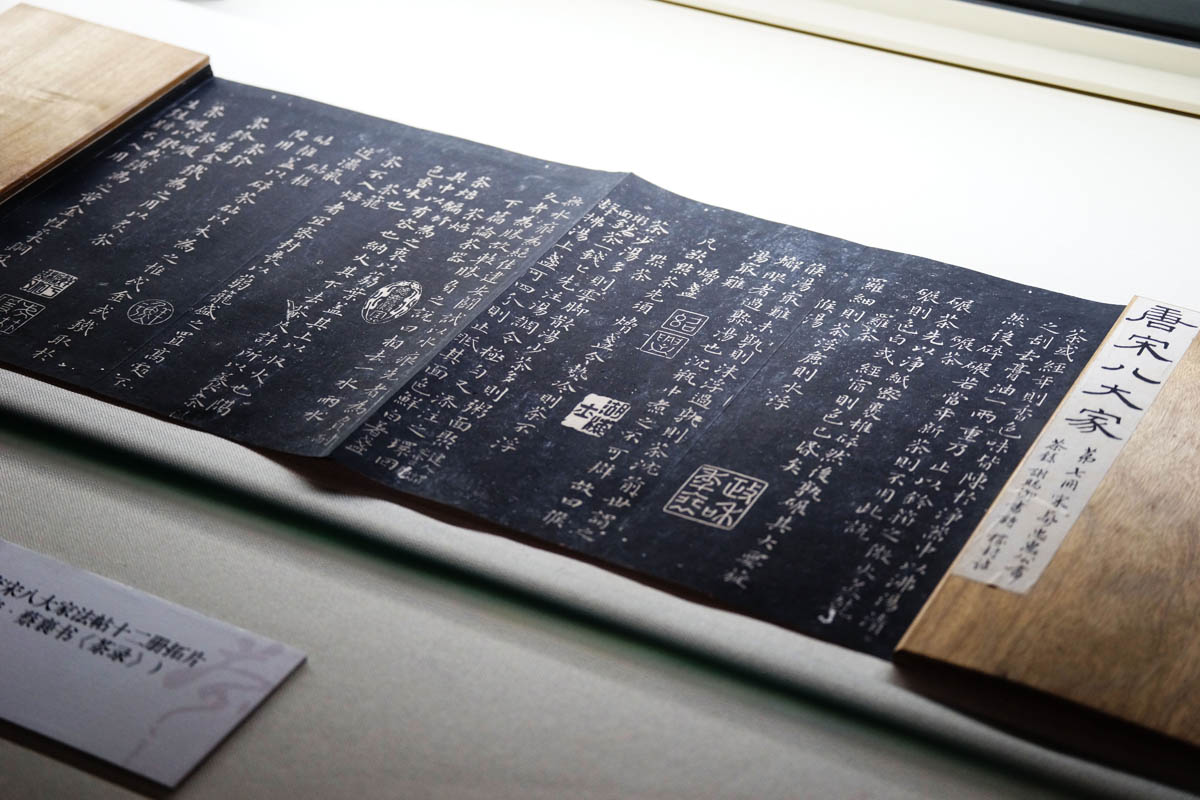 唐宋八大家
第七冊 宋蔡忠惠公書
茶錄 謝賜御書詩
茶或經年則香色味皆陳於淨器中以沸湯漬
之刮去膏油一兩重乃止以鈐箝之微火炙乾
然後碎碾若當年新茶則不用此說
碾茶
碾茶先以淨紙密裹椎碎然後熟碾其大要旋
碾則色白或經宿則色已昏矣
羅茶
羅細則茶浮麤則水浮
候湯
候湯最難未熟則沫浮過熟則茶沉前世謂之
蟹眼者過熟湯也沉瓶中煮之不可辯故曰候
湯最難
熁盞
凡欲點茶先須熁盞令熱冷則茶不浮
點茶
茶少湯多則雲腳散湯少茶多則粥面聚
鈔茶一錢匕先注湯調令極勻又添注入環回
擊拂湯上盞可四分則止眡其面色鮮白著盞
無水痕
久者為勝故較勝負之說曰相去一水兩水
下篇論茶器
茶焙
茶焙編竹為之裹以蒻葉蓋其上以收火也隔
其中以有容也納火其下去茶尺許
色香味也
茶籠
茶不入焙者宜密封裹以蒻籠盛之置高處不
近濕氣
砧椎
砧椎蓋以碎茶砧以木為之椎或金或鐵取於
便用
茶鈐
茶鈐屈金鐵為之用以炙茶
茶碾
茶碾以銀或鐵為之黃金性柔銅
政和
宋八大家法帖十二册拓片
蔡襄书《茶录》）